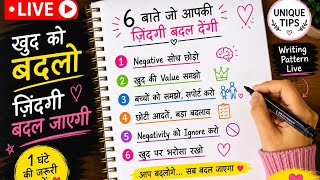 LIVE
खुद को
बदलो
ज़िंदगी
बदल जाएगी
1 घंटे
की जरूरी
6 बाते जो आपकी
ज़िंदगी बदल देंगी
1 Negative सोच छोड़ो
2 खुद की Value समझो
3 बच्चों को समझो, सपोर्ट करो
4 छोटी आदतें, बड़ा बदलाव
5 Negativity को Ignore करो
6 खुद पर भरोसा रखो
आप बदलोगे... सब बदल जाएगा
UNIQUE
TIPS
Writing
Pattern
Live